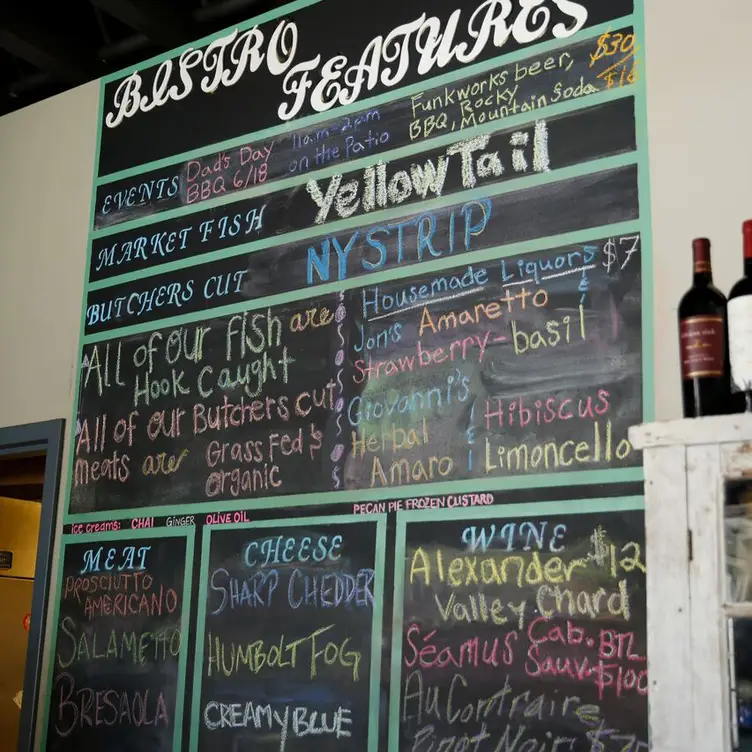 BISTRO
FEATURES
EVENTS
Dad's Day
BBQ 6/18
11am-2pm
on the Patio
Funkworks beer,
BBQ, Rocky
Mountain Soda
$30
MARKET FISH
YellowTail
BUTCHERS CUT
NY STRIP
All of our fish are
Hook Caught
All of our Butchers cut
meats are Grass Fed &
organic
Housemade Liquors $7
Jon's Amaretto &
Strawberry-basil
Giovanni's
Herbal
Amaro
&
Hibiscus
Limoncello
ice creams: CHAI GINGER OLIVE OIL
PECAN PIE FROZEN CUSTARD
MEAT
PROSCIUTTO
AMERICANO
SALAMETTO
BRESAOLA
CHEESE
SHARP CHEDDER
HUMBOLT FOG
CREAMY BLUE
WINE
Alexander $12
Valley Chard
Séamus Cab. BTL
Sauv. $100
Au Contraire
Pinot Noir